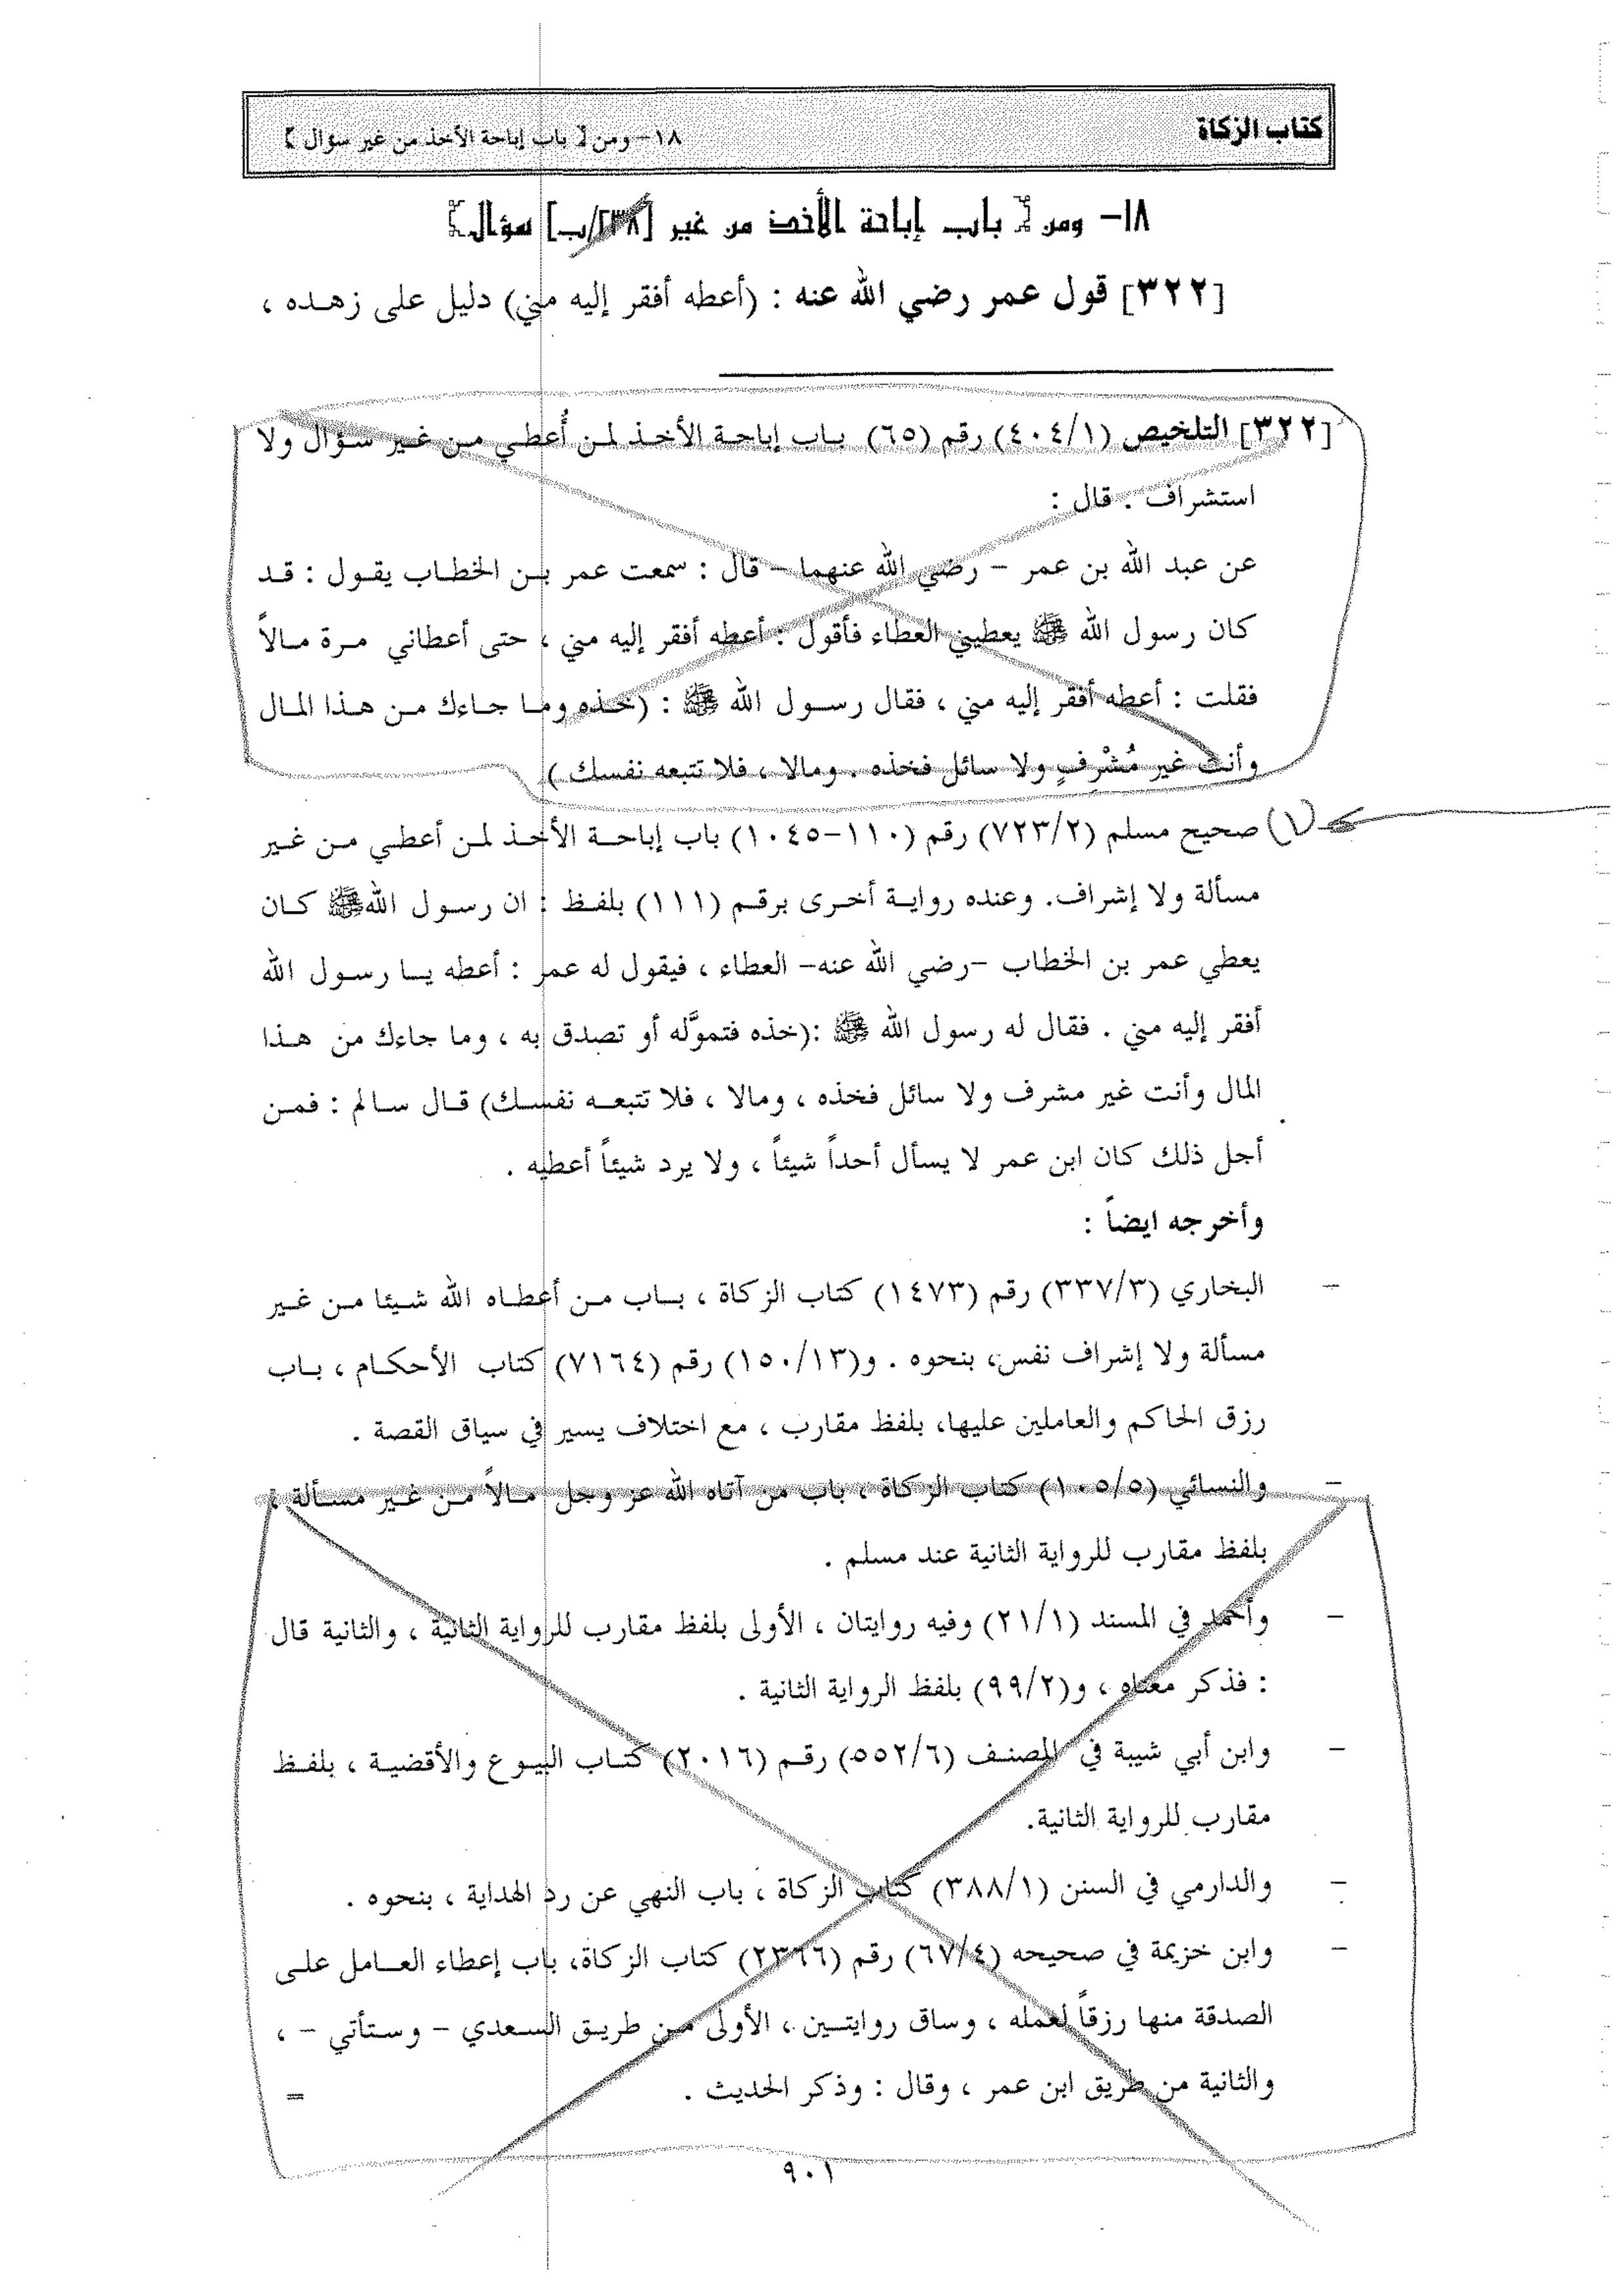 كتاب الزكاة
١٨- ومن { باب إباحة الأخذ من غير سؤال }
١٨- ومن { باب إباحة الأخذ من غير [١٣٨/ب] سؤال }
[٣٢٢] قول عمر رضي الله عنه : (أعطه أفقر إليه مني) دليل على زهده ،
[٣٢٢] التلخيص (٤٠٤/١) رقم (٦٥) باب إباحة الأخذ لمن أُعطي من غير سؤال ولا
استشراف . قال :
عن عبد الله بن عمر - رضي الله عنهما - قال : سمعت عمر بن الخطاب يقول : قد
كان رسول الله ﷺ يعطيني العطاء فأقول : أعطه أفقر إليه مني ، حتى أعطاني مرة مالاً
فقلت : أعطه أفقر إليه مني ، فقال رسول الله ﷺ : (خذه وما جاءك من هذا المال
وأنت غير مُشْرِفٍ ولا سائل فخذه . ومالا ، فلا تتبعه نفسك )
(١) صحيح مسلم (٧٢٣/٢) رقم (١١٠-١٠٤٥) باب إباحة الأخذ لمن أعطي من غير
مسألة ولا إشراف. وعنده رواية أخرى برقم (١١١) بلفظ : ان رسول الله ﷺ كان
يعطي عمر بن الخطاب -رضي الله عنه- العطاء ، فيقول له عمر : أعطه يا رسول الله
أفقر إليه مني . فقال له رسول الله ﷺ :(خذه فتموَّله أو تصدق به ، وما جاءك من هذا
المال وأنت غير مشرف ولا سائل فخذه ، ومالا ، فلا تتبعه نفسك) قال سالم : فمن
أجل ذلك كان ابن عمر لا يسأل أحداً شيئاً ، ولا يرد شيئاً أعطيه .
وأخرجه ايضاً :
- البخاري (٣٣٧/٣) رقم (١٤٧٣) كتاب الزكاة ، باب من أعطاه الله شيئا من غير
مسألة ولا إشراف نفس، بنحوه . و(١٥٠/١٣) رقم (٧١٦٤) كتاب الأحكام ، باب
رزق الحاكم والعاملين عليها، بلفظ مقارب ، مع اختلاف يسير في سياق القصة .
- والنسائي (١٠٥/٥) كتاب الزكاة ، باب من آتاه الله عز وجل مالاً من غير مسألة ،
بلفظ مقارب للرواية الثانية عند مسلم .
- وأحمد في المسند (٢١/١) وفيه روايتان ، الأولى بلفظ مقارب للرواية الثانية ، والثانية قال
: فذكر معناه ، و(٩٩/٢) بلفظ الرواية الثانية .
- وابن أبي شيبة في المصنف (٥٥٢/٦) رقم (٢٠١٦) كتاب البيوع والأقضية ، بلفظ
مقارب للرواية الثانية.
- والدارمي في السنن (٣٨٨/١) كتاب الزكاة ، باب النهي عن رد الهداية ، بنحوه .
- وابن خزيمة في صحيحه (٦٧/٤) رقم (٢٣٦٦) كتاب الزكاة، باب إعطاء العامل على
الصدقة منها رزقاً لعمله ، وساق روايتين ، الأولى من طريق السعدي - وستأتي - ،
والثانية من طريق ابن عمر ، وقال : وذكر الحديث . =
٩٠١